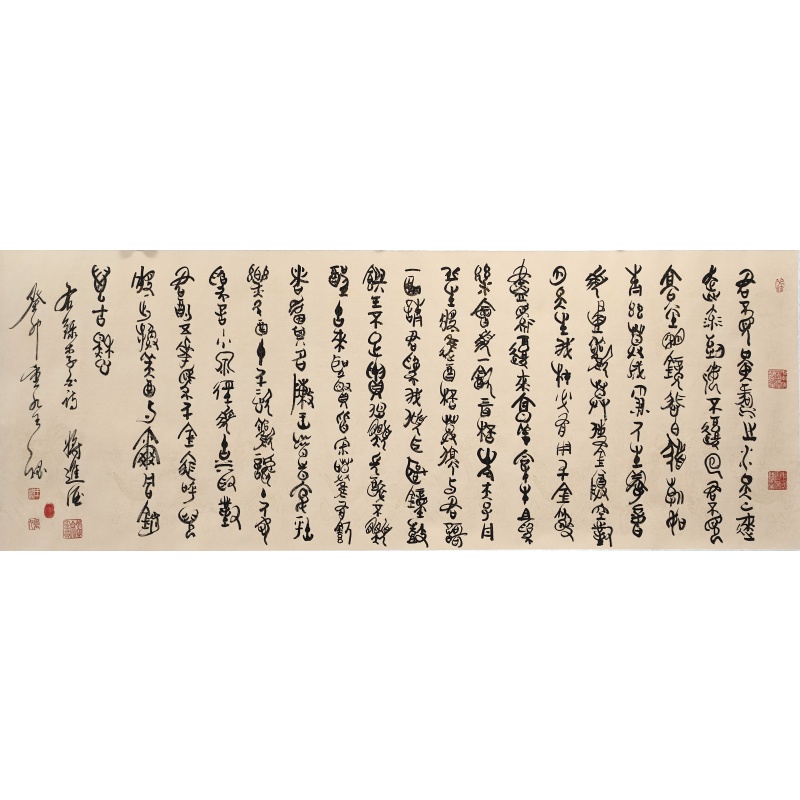 君不見黃河之水天上來
奔流到海不復回君不見
高堂明鏡悲白髮朝如
青絲暮成雪人生得意
須盡歡莫使金樽空對
月天生我材必有用千金散
盡還復來烹羊宰牛且為
樂會須一飲三百杯岑夫子丹
丘生將進酒杯莫停與君歌
一曲請君為我傾耳聽鐘鼓
饌玉不足貴但願長醉不願
醒古來聖賢皆寂寞惟有飲
者留其名陳王昔時宴平
樂斗酒十千恣歡謔主人何
為言少錢徑須沽取對
君酌五花馬千金裘呼兒
將出換美酒與爾同銷
萬古愁
右錄李白詩 將進酒
癸卯